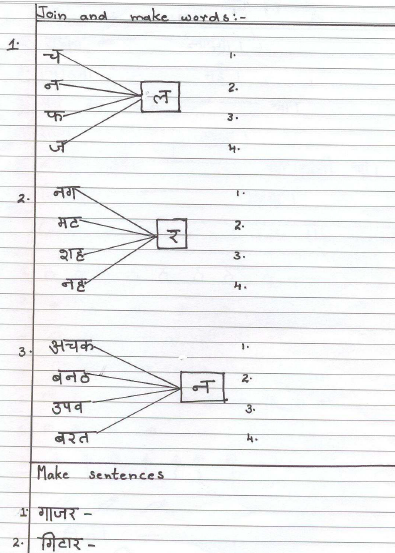 Join and make words:-
1.
च 1.
न ल 2.
फ 3.
ज 4.
2. नग 1.
मट र 2.
शह 3.
नह 4.
3. अचक 1.
बनठ न 2.
उपव 3.
बरत 4.
Make sentences
1. गाजर -
2. गिटार -